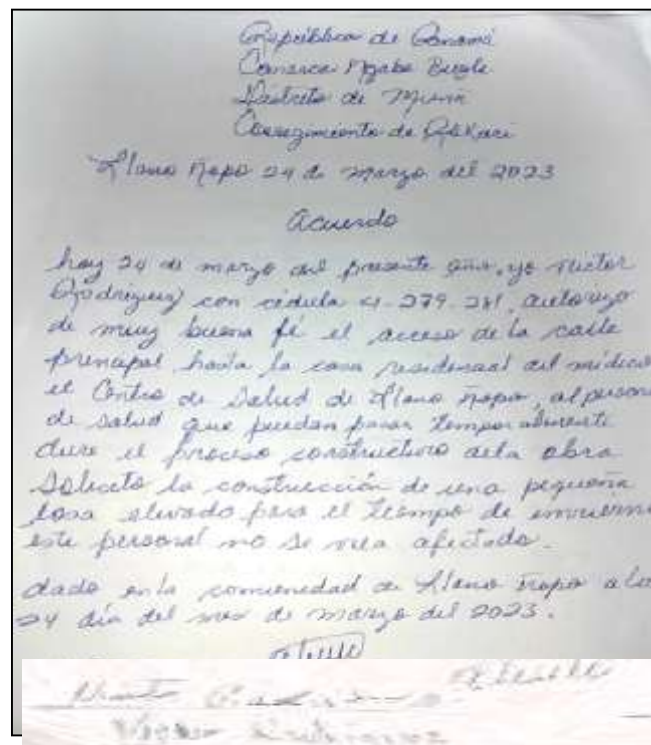 República de Panamá
Comarca Ngabe Bugle
Distrito de Mironó
Corregimiento de
Llano Ñopo 24 de marzo del 2023
Acuerdo
hoy 24 de marzo del presente año, yo Victor
Rodriguez con cédula 4.279.281, autorizo
de muy buena fé el acceso de la calle
principal hasta la casa residensal del médico
el Centro de Salud de Llano Ñopo, al persona
de salud que puedan pasar temporalmente
dure el proceso constructivo dela obra
Solicito la construcción de una pequeña
losa elevado para el tiempo de invierno
este personal no se vea afectado.
dado en la comunidad de Llano Ñopo a los
24 dia del mes de marzo del 2023.